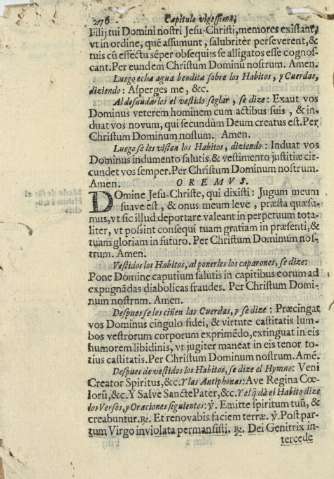 276 Capitulo vigessimo,
Filij tui Domini nostri Jesu-Christi, memores existant,
vt in ordine, quē assumunt, salubritèr perseverent, &
tuis cū effectu sēper obsequijs se alligatos esse cognos-
cant. Per eundem Christum Dominū nostrum. Amen.
Luego echa agua bendita sobre los Habitos, y Cuerdas,
diciendo: Asperges me, &c.
Al desnudarles el vestido seglar, se dize: Exuat vos
Dominus veterem hominem cum actibus suis, & in-
duat vos novum, qui secundùm Deum creatus est. Per
Christum Dominum nostrum. Amen.
Luego se les vistan los Habitos, diciendo: Induat vos
Dominus indumento salutis & vestimento justitiæ cir-
cundet vos semper. Per Christum Dominum nostrum.
Amen. OREMVS.
Domine Jesu-Christe, qui dixisti: Jugum meum
suave est, & onus meum leve, præsta quæsu-
mus, vt sic illud deportare valeant in perpetuum tota-
liter, vt possint consequi tuam gratiam in præsenti, &
tuam gloriam in futuro. Per Christum Dominum nos-
trum. Amen.
Vestidos los Habitos, al ponerles los caparones, se dize:
Pone Domine caputium salutis in capitibus eorum ad
expugnādas diabolicas fraudes. Per Christum Domi-
num nostrum. Amen.
Despues se les ciñen las Cuerdas, y se dize: Præcingat
vos Dominus cingulo fidei, & virtute castitatis lum-
bos vestrorum corporum exprimēdo, extinguat in eis
humorem libidinis, vt jugiter maneat in eis tenor to-
tius castitatis. Per Christum Dominum nostrum. Amē.
Despues de vestidos los Habitos, se dize el Hymno: Veni
Creator Spiritus, &c. Y las Antiphonas: Ave Regina Cœ-
lorum, &c. Y Salve Sancte Pater, &c. Y el q̄ dà el Habito dize
los Versos, y Oraciones siguientes: ℣. Emitte spiritum tuū, &
creabuntur. ℟. Et renovabis faciem terræ. ℣. Post par-
tum Virgo inviolata permansisti. ℟. Dei Genitrix in-
tercede